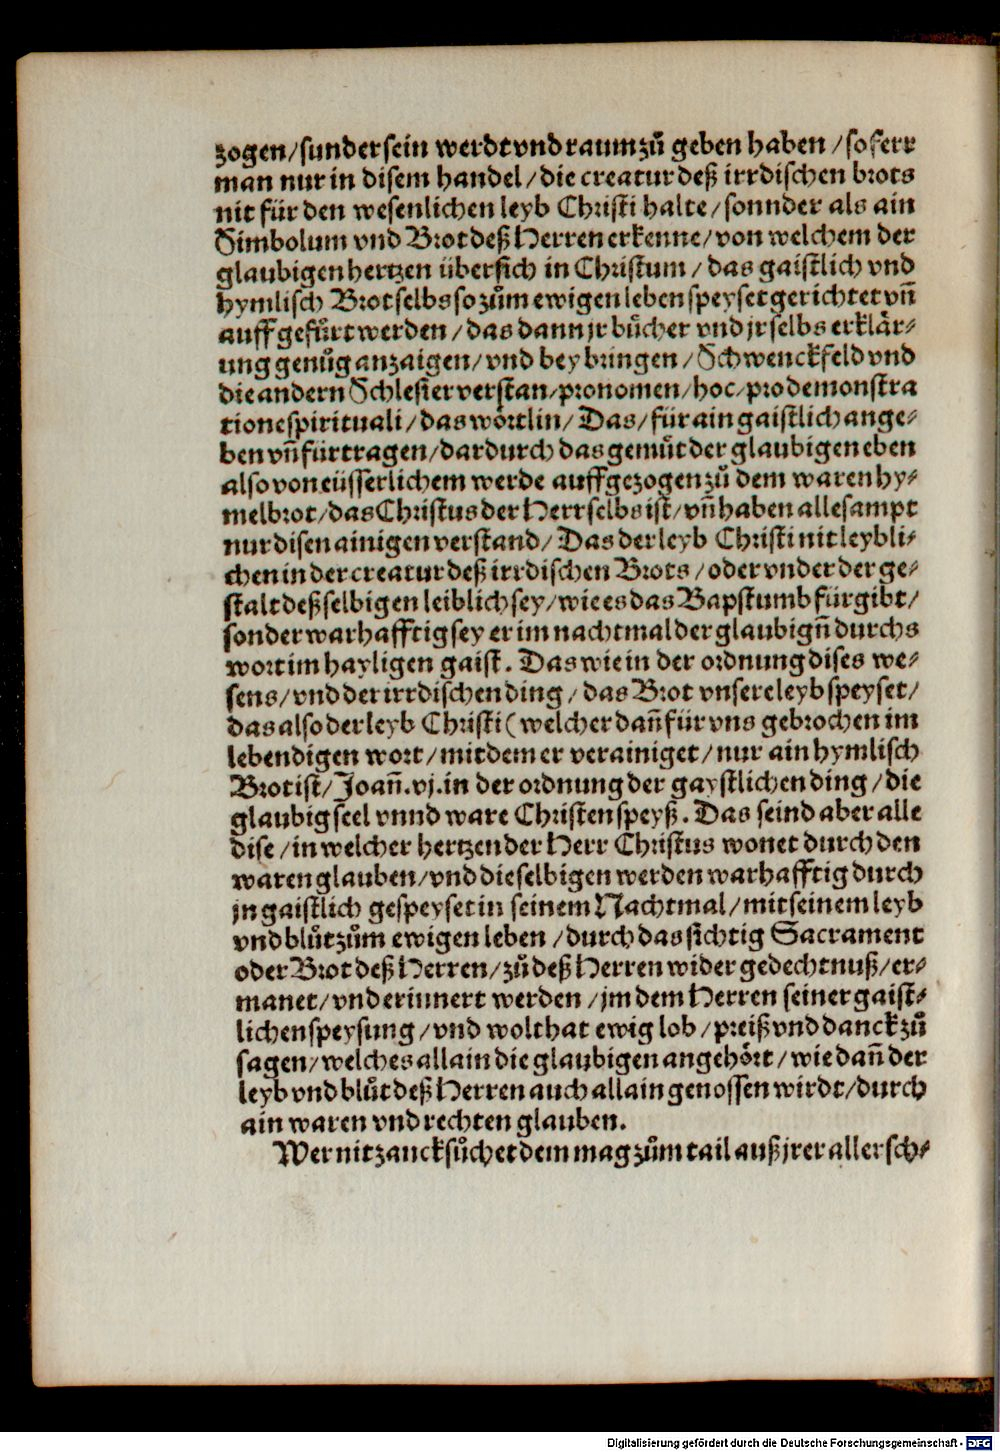 zogen/sunder sein werdt vnd raum zů geben haben /so ferr
man nur in disem handel /die creatur deß irrdischen brots
nit für den wesenlichen leyb Christi halte/sonnder als ain
Simbolum vnd Brot deß Herren erkenne/von welchem der
glaubigen hertzen übersich in Christum /das gaistlich vnd
hymlisch Brot selbs so zům ewigen leben speyset gerichtet vñ
auffgefůrt werden /das dann jr bůcher vnd jr selbs erklär⸗
ung genůg anzaigen/vnd beybringen /Schwenckfeld vnd
die andern Schlesier verstan/pronomen/hoc/pro demonstra
tione spirituali /das wörtlin/ Das/für ain gaistlich ange⸗
ben vñ fürtragen/dardurch das gemůt der glaubigen eben
also von eüsserlichem werde auffgezogen zů dem waren hy⸗
melbrot/das Christus der Herr selbs ist/vñ haben allesampt
nur disen ainigen verstand/ Das der leyb Christi nit leybli⸗
chen in der creatur deß irrdischen Brots /oder vnder der ge⸗
stalt deßselbigen leiblich sey/wie es das Bapstumb fürgibt/
sonder warhafftig sey er im nachtmal der glaubigñ durchs
wort im hayligen gaist. Das wie in der ordnung dises we⸗
sens/vnd der irrdischen ding /das Brot vnsere leyb speyset/
das also der leyb Christi (welcher dañ für vns gebrochen im
lebendigen wort /mit dem er verainiget/nur ain hymlisch
Brot ist/Joañ.vj.in der ordnung der gaystlichen ding /die
glaubig seel vnnd ware Christen speyß. Das seind aber alle
dise /in welcher hertzen der Herr Christus wonet durch den
waren glauben/vnd dieselbigen werden warhafftig durch
jn gaistlich gespeyset in seinem Nachtmal/mit seinem leyb
vnd blůt zům ewigen leben /durch das sichtig Sacrament
oder Brot deß Herren/zů deß Herren widergedechtnuß/er⸗
manet/vnd erinnert werden /jm dem Herren seiner gaist⸗
lichen speysung /vnd wolthat ewig lob /preiß vnd danck zů
sagen/welches allain die glaubigen angehört/wie dañ der
leyb vnd blůt deß Herren auch allain genossen wirdt/durch
ain waren vnd rechten glauben.
Wer nit zanck sůchet dem mag zům tail auß jrer aller sch⸗
Digitalisierung gefördert durch die Deutsche Forschungsgemeinschaft - DFG